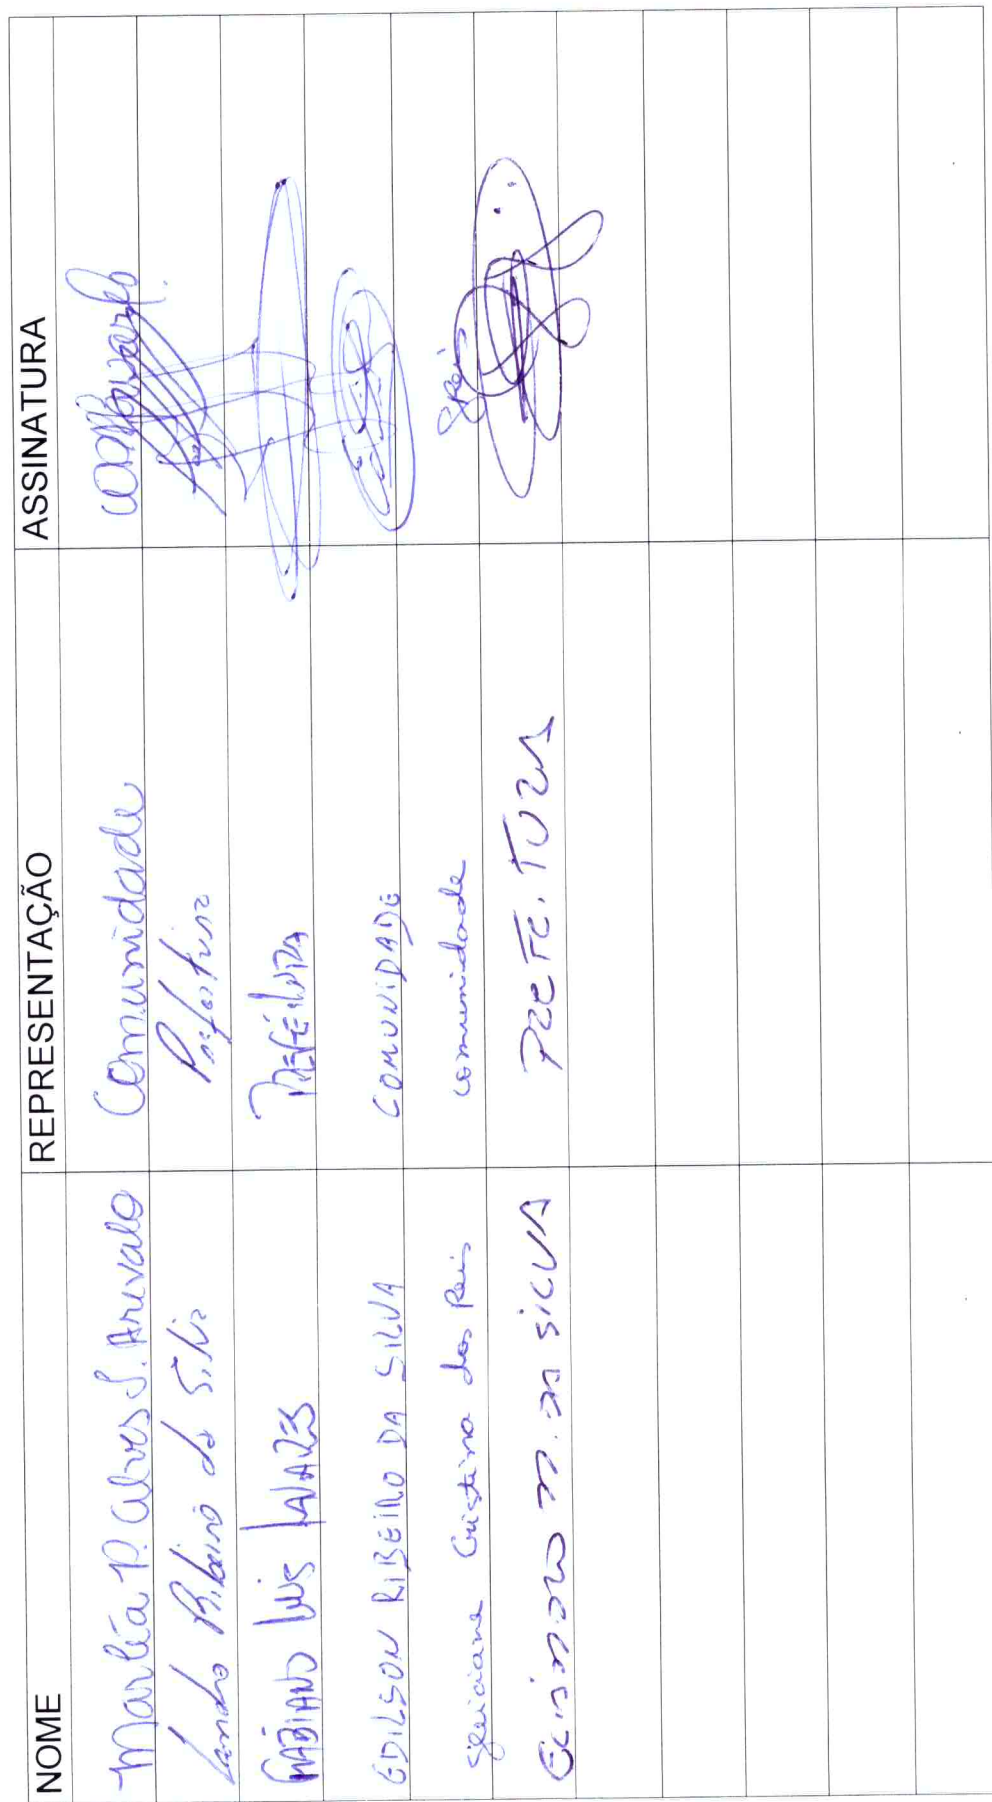 NOME REPRESENTAÇÃO ASSINATURA
Marléa P. Alves S. Arevalo Comunidade
Sandro Ribeiro da Silva Prefeitura
FABIANO LUIS TAVARES PREFEITURA
EDILSON RIBEIRO DA SILVA COMUNIDADE
Cristina dos Reis comunidade GReis
SILVA PREFEITURA